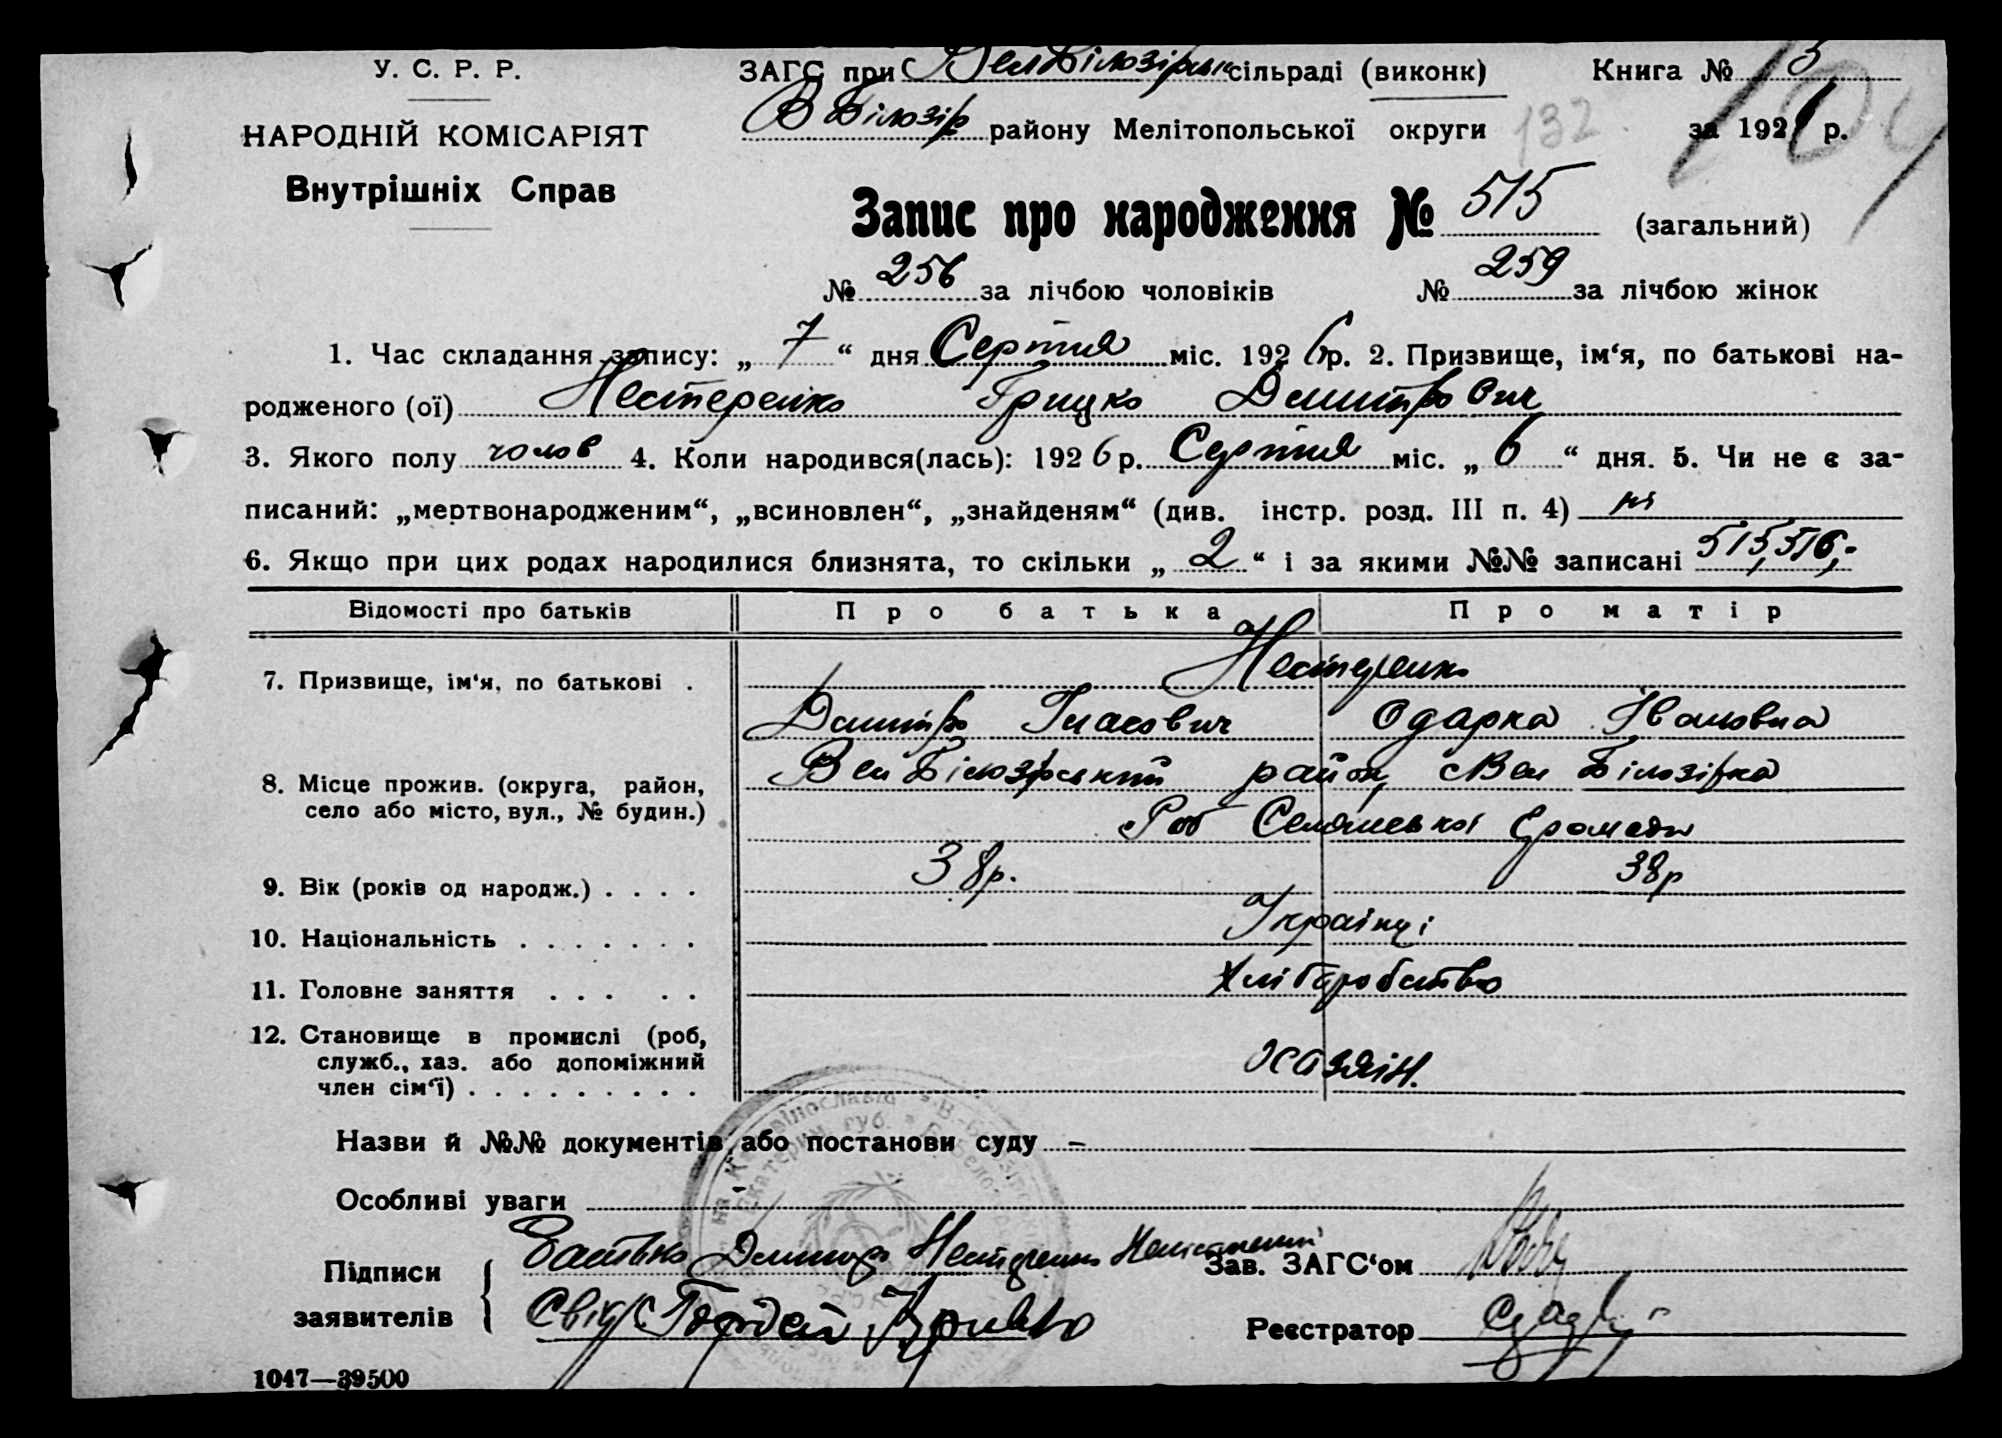 У. С. Р. Р.
НАРОДНІЙ КОМІСАРІЯТ
Внутрішніх Справ
ЗАГС при ВелБілозірськ сільраді (виконк) Книга № 3
В Білозір району Мелітопольської округи за 192 р.
132
104
Запис про народження № 515 (загальний)
№ 256 за лічбою чоловіків № 259 за лічбою жінок
1. Час складання запису: „ 7 “ дня Серпня міс. 1926 р. 2. Призвище, ім‘я, по батькові на-
родженого (ої) Нестеренко Грицко Дмитрович
3. Якого полу чолов 4. Коли народився(лась): 1926 р. Серпня міс. „ 6 “ дня. 5. Чи не є за-
писаний: „мертвонародженим“, „всиновлен“, „знайденям“ (див. інстр. розд. III п. 4) ні
6. Якщо при цих родах народилися близнята, то скільки „ 2 “ і за якими №№ записані 515, 516,
Відомості про батьків Про батька Про матір
7. Призвище, ім‘я, по батькові . Нестеренко
Дмитро Гнатович Одарка Івановна
8. Місце прожив. (округа, район, село або місто, вул., № будин.) Вел Білозірський район, с Вел Білозірка
Селянської Громади
9. Вік (років од народж.) . . . . 38р. 38р
10. Національність . . . . . . . Українці
11. Головне заняття . . . . . Хліборобство
12. Становище в промислі (роб, служб., хаз. або допоміжний член сім‘ї) . . . . . . . . . хазяїн.
Назви й №№ документів або постанови суду –
Особливі уваги -
Підписи заявителів { Батько Дмитро Нестеренко Неписменний
Зав. ЗАГС‘ом
Свід. Гордей
Реєстратор
1047—39500